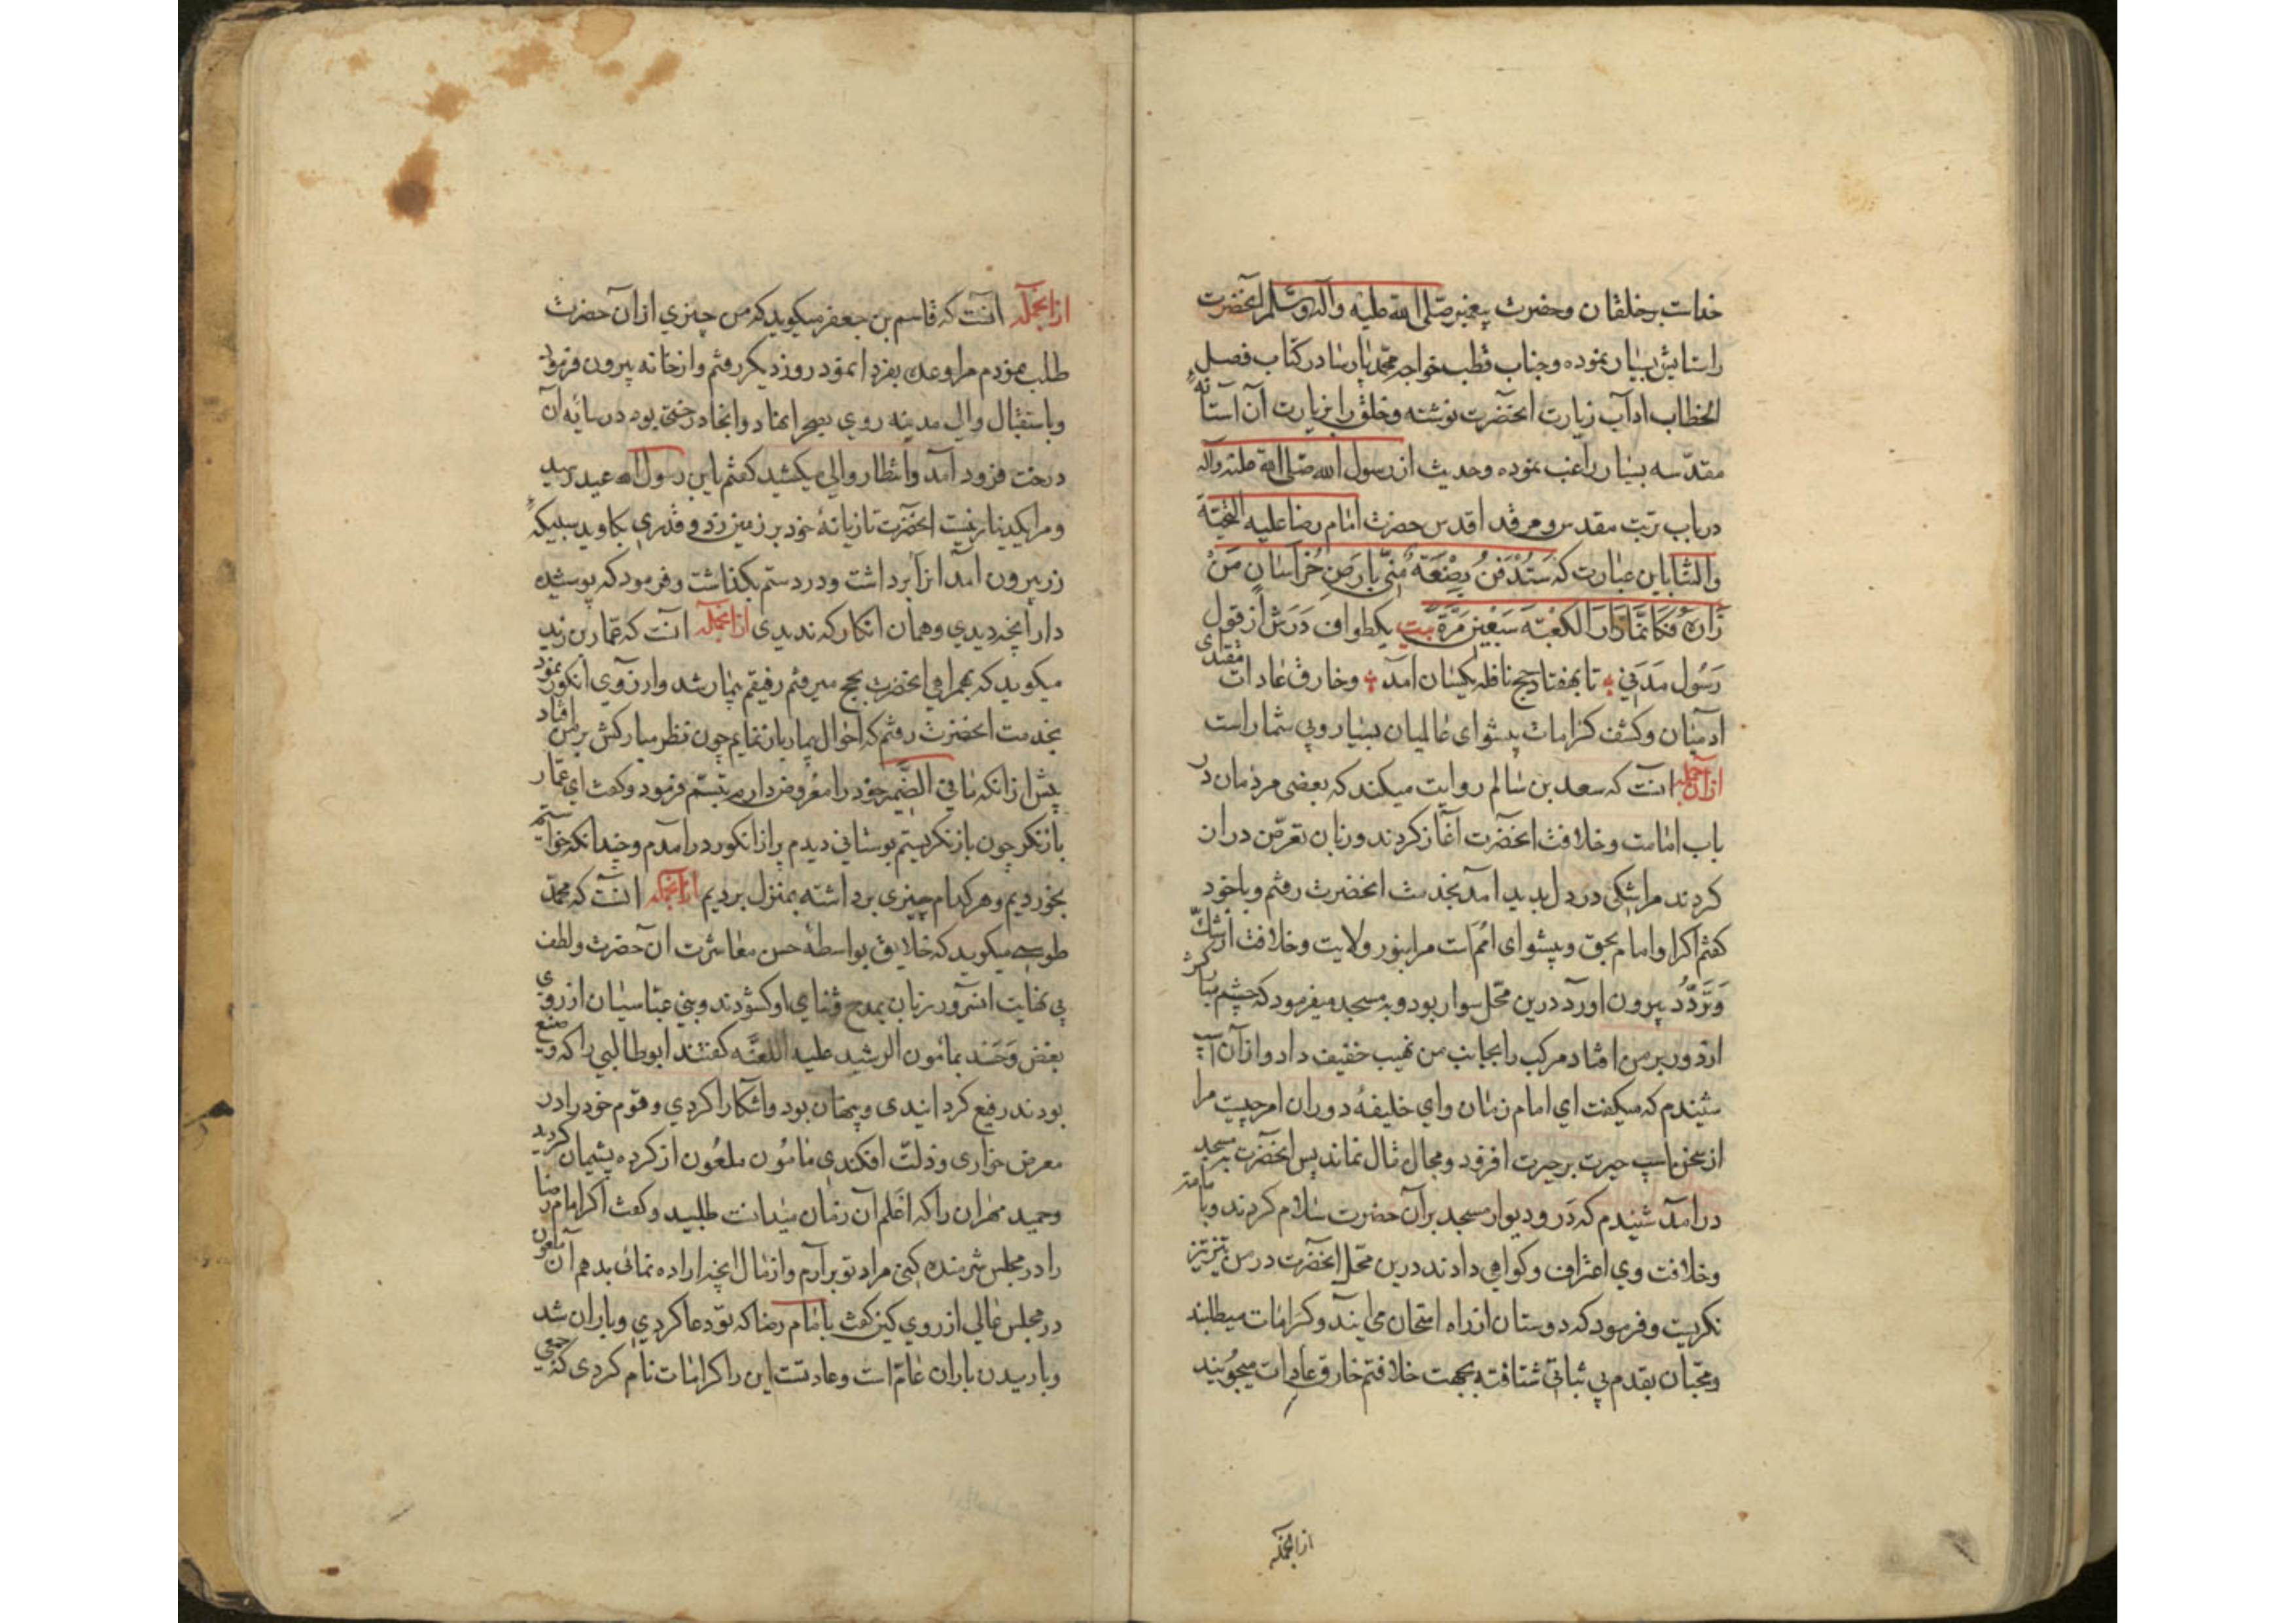 خداست بر خلقان و حضرت پیغمبر صلی الله علیه وآله وسلم آنحضرت
را ستایش بسیار نموده و جناب قطب خواجه محمد پارسا در کتاب فصل
الخطاب اداب زیارت آنحضرت نوشته و خلق را بزیارت آن آستانهٔ
مقدّسه بسیار راغب نموده وحدیث از رسول الله صلی الله علیه وآله
در باب تربت مقدس و مرقد اقدس حضرت امام رضا علیه التحیّة
والثنا باین عبارت که سَتُدْفَنُ بِضْعَةٌ مِنّی بارضِ خُراسانٍ مَنْ
زَارَهُ فَکَانَّمَا زَارَ الکَعْبَةَ سَبْعینَ مَرَّةً بیت یکطواف دَرَش از قول
رَسُول مَدَنی تا بهفتاد حج نافله یکسان آمد وخارق عادات مقتدی
ادمیان وکشف کرامات پیشوای عالمیان بسیار وبی شمار است
ازآنجمله آنست که سعد بن سالم روایت میکند که بعضی مردمان در
باب امامت وخلافت آنحضرت آغاز کردند وزبان تعرّض دران
کردند مرا شکی در دل پدید آمد بخدمت انحضرت رفتم وباخود
کفتم اکر او امام بحق وپیشوای امم است مرا بنور ولایت وخلافت از شکّ
وَتَرَدُّد بیرون اورد درین محل سوار بود وبه مسجد میفرمود که چشم مبارکش
از دور بر من افتاد مرکب را بجانب من نهیب خفیف داد واز آن اسپ
شنیدم که میکفت ای امام زمان وای خلیفهٔ دوران امر چیست مرا
از سخن اسپ حیرت بر حیرت افزود ومجال نماند پس آنحضرت بمسجد
درآمد شنیدم که دَر ودیوار مسجد برآن حضرت سلام کردند وبامامت
وخلافت وی اعتراف وکواهی دادند درین محل آنحضرت در من تیز تیز
نکریست وفرمود که دوستان از راه امتحان می ایند وکرامات میطلبند
ومحبّان بقدم بی ثباتی شتافته بجهت خلافتم خارق عادات میجویند
ازانجمله
ازانجمله آنست که قاسم بن جعفر میکوید که من چیزی از آن حضرت
طلب نمودم مرا وعده بفردا نمود روز دیکر رفتم واز خانه بیرون فرمود
وباستقبال والی مدینه روی بصحرا نهاد وآنجا درختی بود در سایه آن
درخت فرود آمد وانتظار والی میکشید کفتم یابن رسول الله عید رسید
ومرا یکدینار نیست آنحضرت تازیانهٔ خود بر زمین زد وقدری بکاوید سبیکهٔ
زر بیرون آمد آنرا برداشت ودر دستم بکذاشت وفرمود که پوشیده
دار آنچه دیدی وهمان انکار که ندیدی ازانجمله آنست که عمّار بن زید
میکوید که بهمراهی آنحضرت بحج میرفتم رفیقم بیمار شد وارزوی انکور نمود
بخدمت انحضرت رفتم که احوال بیمار باز نمایم چون نظر مبارکش بر من افتاد
پیش ازانکه ما فی الضمیر خود را معروض دارم تبسّم فرمود وکفت ای عمّار
بازنکر چون بازنکریستم بوستانی دیدم پر از انکور درآمدم وچندانکه خواستیم
بخوردیم وهر کدام چیزی برداشته بمنزل بردیم ازانجمله آنست که محمّد
طوسی میکوید که خلایق بواسطهٔ حسن معاشرت آن حضرت ولطف
بی نهایت آنسرور زبان بمدح وثنای او کشودند وبنی عبّاسیان از روی
بغض وَحَسَد بمامون الرشید علیه اللعنه کفتند ابوطالبی را که وضیع
بودند رفیع کردانیدی وپنهان بود واشکارا کردی وقوم خود را در
معرض خواری وذلّت افکندی مامُون ملعُون از کرده پشیمان کردید
وحمید مهران را که اعلم آن زمان میدانست طلبید وکفت اکر امام رضا
را در مجلس شرمنده کنی مراد تو برآرم واز مال آنچه اراده نمائی بدهم آن ملعون
در مجلس عالی از روی کین کفت باامام رضا که تو دعا کردی وباران شد
وباریدن باران عامّ است وعادتست این را کرامات نام کردی که جمعی